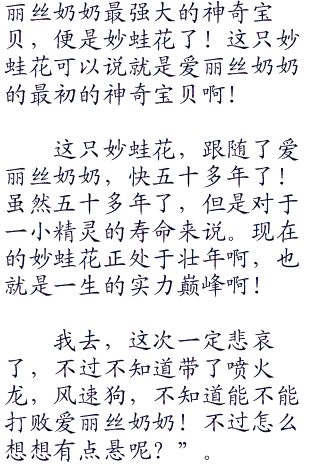 丽丝奶奶最强大的神奇宝
贝，便是妙蛙花了！这只妙
蛙花可以说就是爱丽丝奶奶
的最初的神奇宝贝啊！
这只妙蛙花，跟随了爱
丽丝奶奶，快五十多年了！
虽然五十多年了，但是对于
一小精灵的寿命来说。现在
的妙蛙花正处于壮年啊，也
就是一生的实力巅峰啊！
我去，这次一定悲哀
了，不过不知道带了喷火
龙，风速狗，不知道能不能
打败爱丽丝奶奶！不过怎么
想想有点悬呢？”。